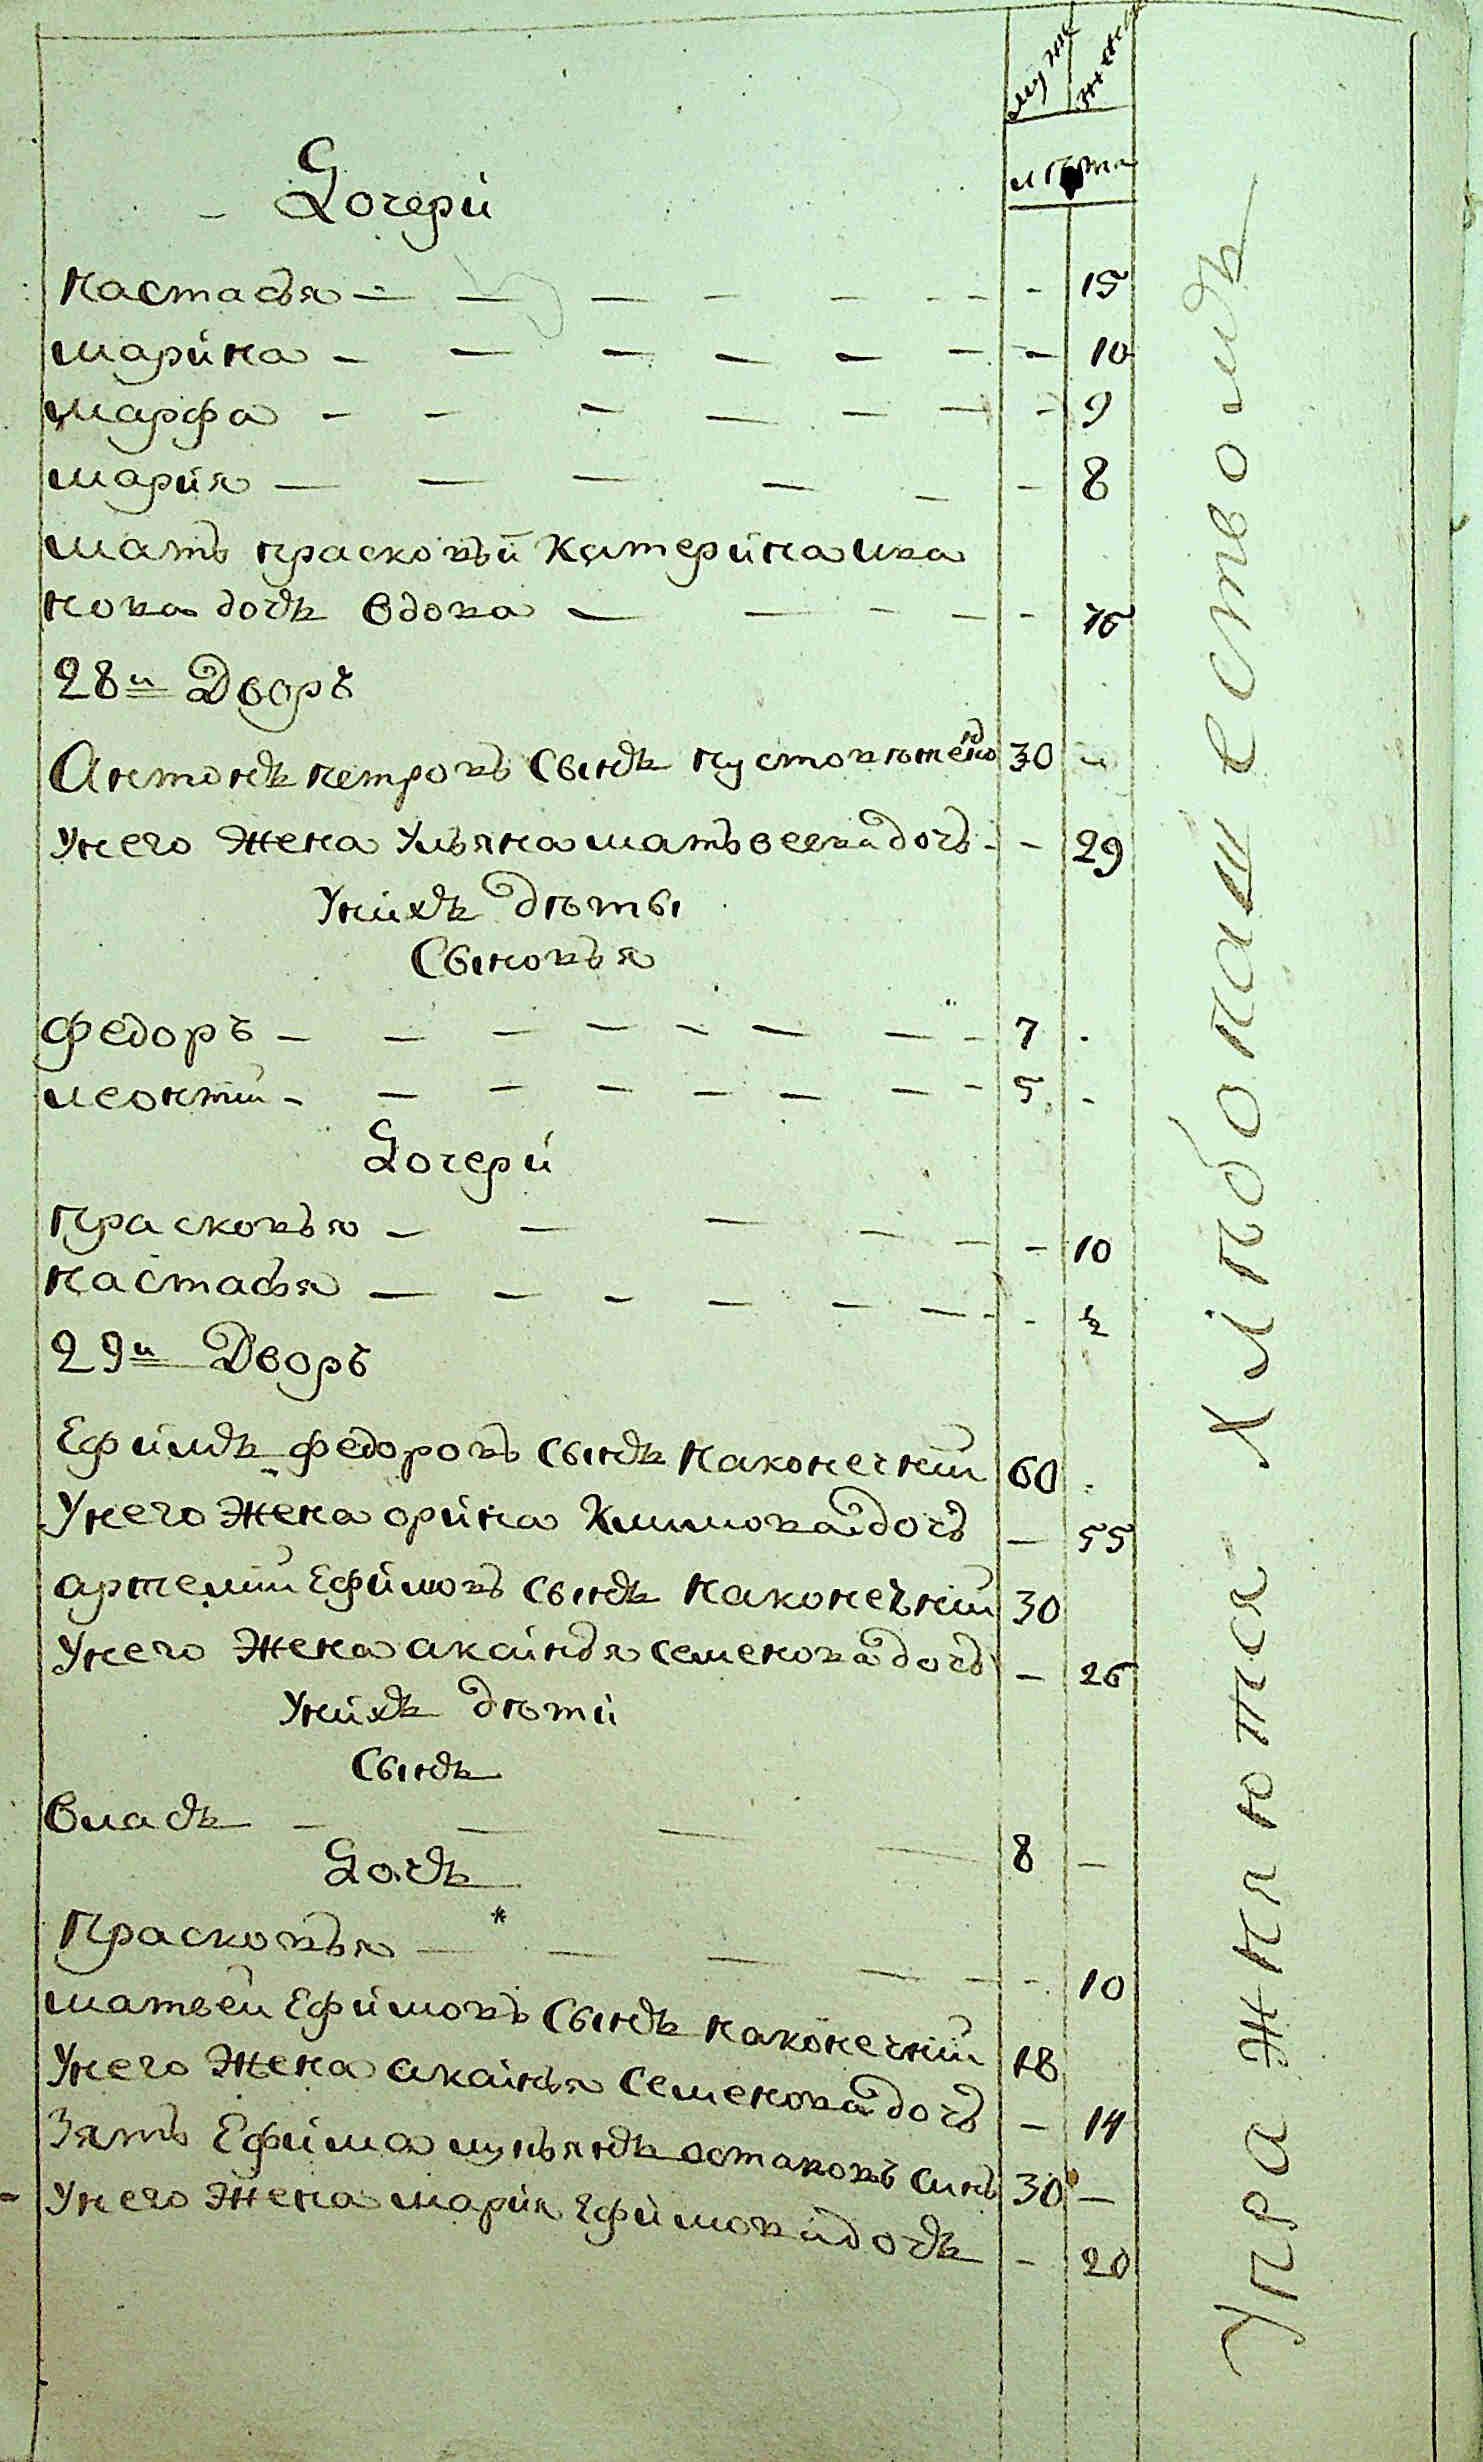 муж жен
лѣта
Дочери
настасья 15
марина 10
марфа 9
мария 8
мать прасковьи катерина ива
нова дочь вдова 76
28й Дворъ
Антонъ петровъ сынъ 30
Унего жена Ульяна матьвеева дочь 29
Унихъ дѣты
Сыновья
Федоръ 7
леонтий 5
Дочери
прасковья 10
настасья ½
29й Дворъ
Ефимъ федоровъ сынъ наконечний 60
Унего жена орина климова дочь 55
артемий Ефимовъ сынъ наконечний 30
Унего жена акулина семенова дочь 26
Унихъ дѣти
Сынъ
Власъ 8
Дочъ
Прасковья 10
матвей Ефимовъ сынъ наконечний 18
Унего жена семенова дочь 14
Зять Ефима лукьянъ остаповъ синъ 30
Унего жена мария Ефимова дочъ 20
Упражняютса хлѣбопашествомъ